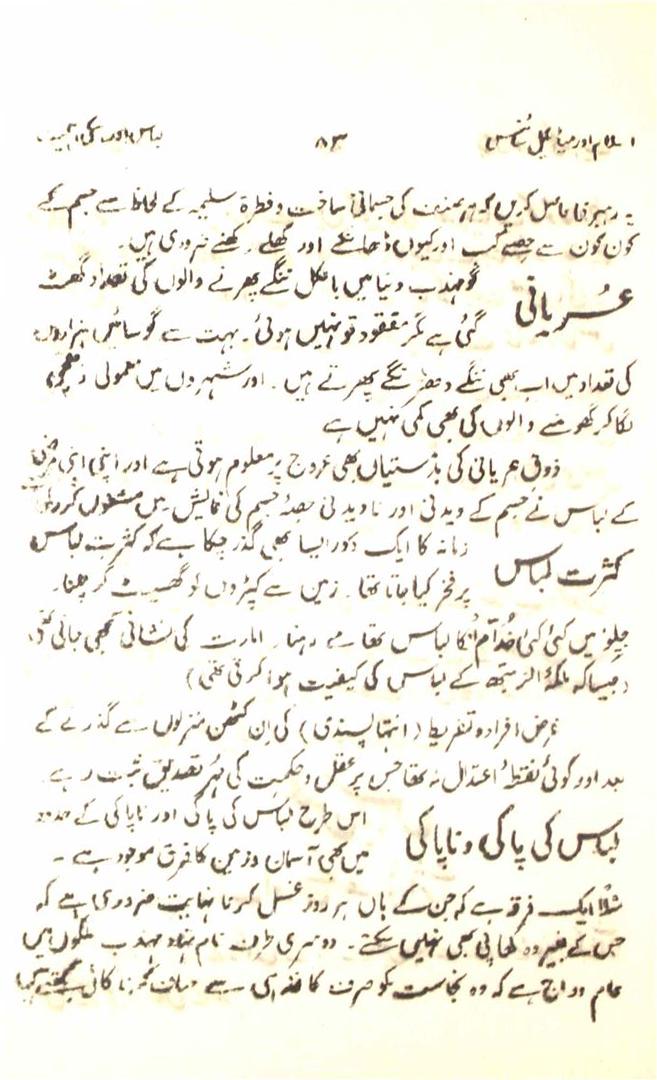 اسلام اور میڈیکل سائنس ۸۳ لباس اور اس کی اہمیت
یہ رہبر فنا حاصل کریں کہ ہر صنف کی جسمانی ساخت و فطرۃ سلیمہ کے لحاظ سے جسم کے
کون کون سے حصے کب اور کیوں ڈھانکنے اور کھلے رکھنے ضروری ہیں۔
عریانی
گو مہذب دنیا میں بالکل ننگے پھرنے والوں کی تعداد گھٹ
گئی ہے مگر مفقود تو نہیں ہوئی۔ بہت سے گوسائیں ہزاروں
کی تعداد میں اب بھی ننگے دھڑنگے پھرتے ہیں۔ اور شہروں میں معمولی
لگا کر گھومنے والوں کی بھی کمی نہیں ہے
ذوق عریانی کی بدمستیاں بھی عروج پر معلوم ہوتی ہے اور اپنی اپنی
کے لباس نے جسم کے دیدنی اور نادیدنی حصۂ جسم کی نمایش میں مشغول کر دیا
کثرت لباس
زمانہ کا ایک دور ایسا بھی گذر چکا ہے کہ کثرت لباس
پر فخر کیا جاتا تھا۔ زمین سے کپڑوں کو گھسیٹ کر چلنا۔
جلو میں کئی کئی خدام کا لباس تھامے رہنا۔ امارت کی نشانی سمجھی جاتی تھی
(جیسا کہ ملکۂ الزبتھ کے لباس کی کیفیت ہوا کرتی تھی)
غرض افراط و تفریط (انتہا پسندی) کی ان کٹھن منزلوں سے گذرنے کے
بعد اور کوئی نقطۂ اعتدال نہ تھا جس پر عقل و حکمت کی مہر تصدیق ثبت رہے۔
لباس کی پاکی و ناپاکی
اس طرح لباس کی پاکی اور ناپاکی کے حدود
میں بھی آسمان و زمین کا فرق موجود ہے۔
مثلاً ایک فرقہ ہے کہ جن کے ہاں ہر روز غسل کرنا نہایت ضروری ہے کہ
جس کے بغیر وہ کھا پی بھی نہیں سکتے۔ دوسری طرف نام نہاد مہذب ملکوں میں
عام رواج ہے کہ وہ نجاست کو صرف کاغذ ہی سے صاف کرنا کافی سمجھتے ہیں